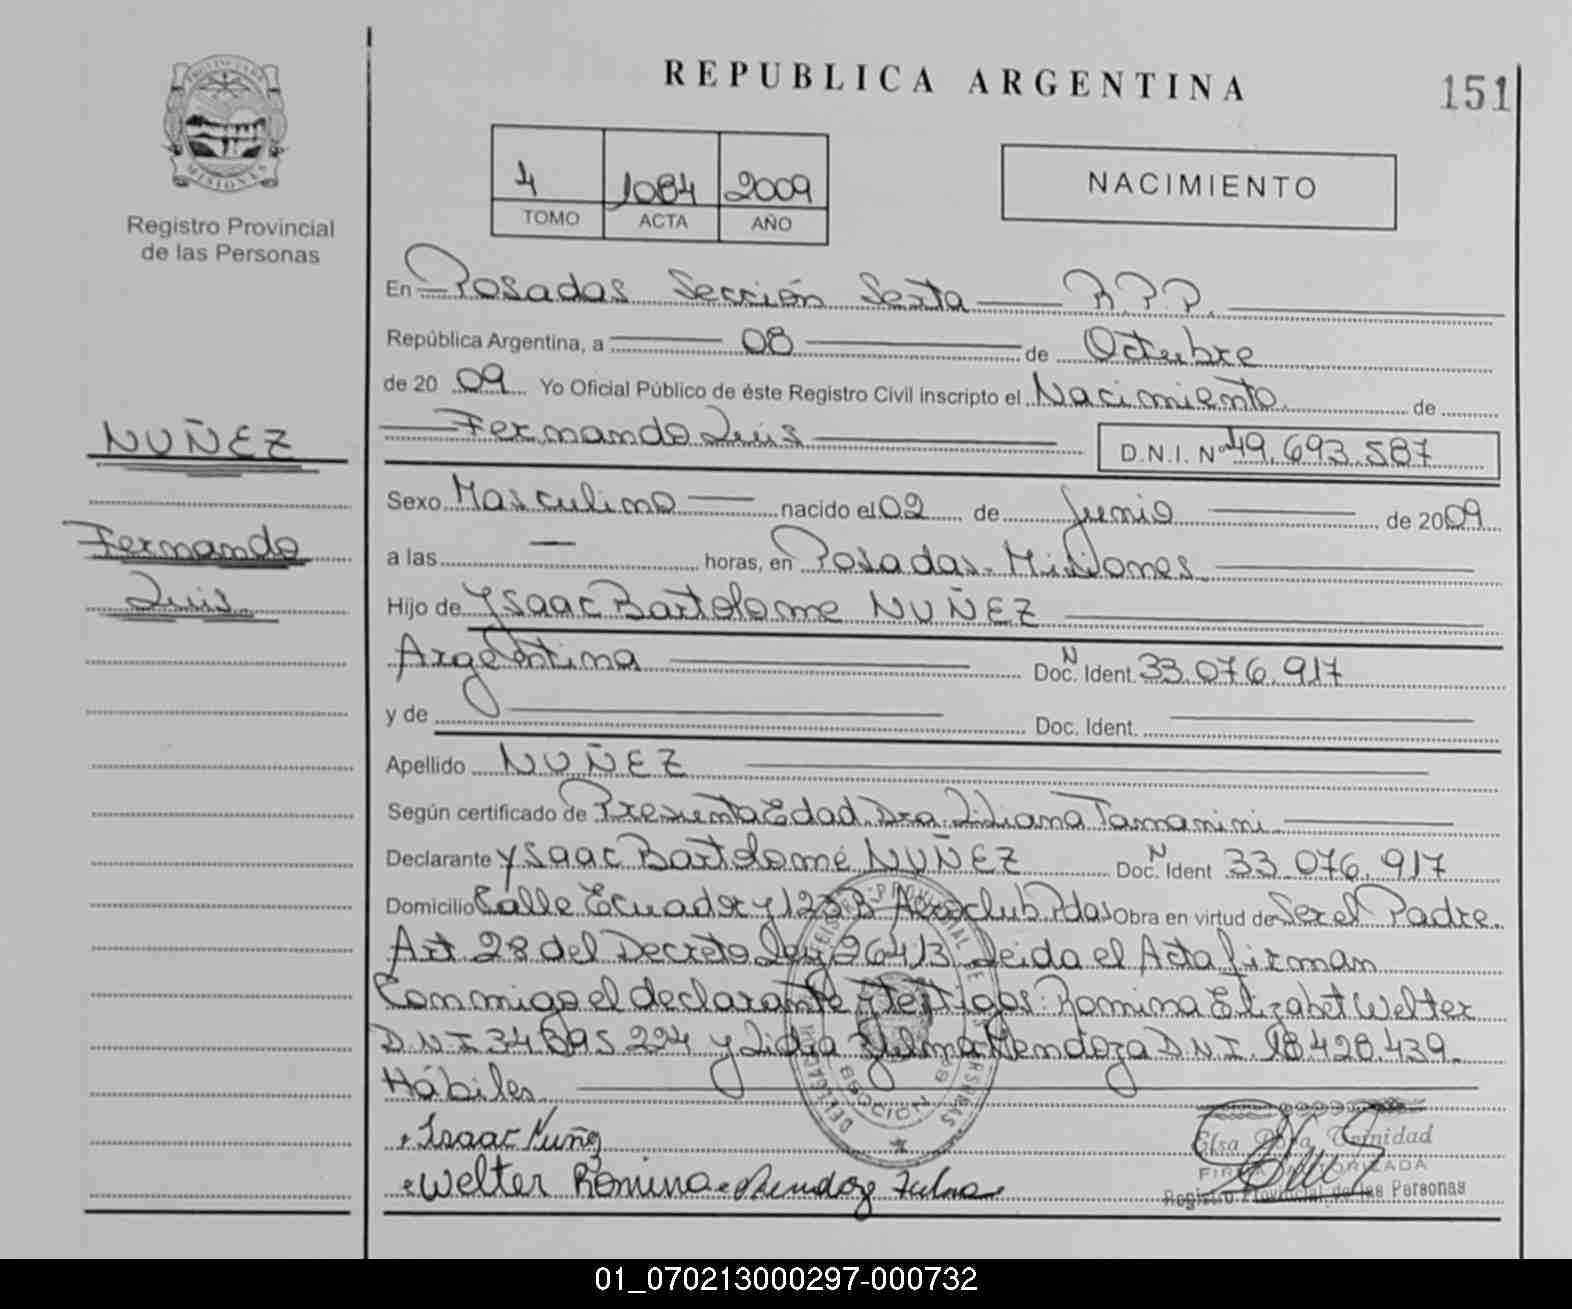 REPUBLICA ARGENTINA
151
PROVINCIA DE
MISIONES
Registro Provincial
de las Personas
4 1084 2009
TOMO ACTA AÑO
NACIMIENTO
En Posadas Sección Sexta R.P.P.
República Argentina, a 08 de Octubre
de 20 09 Yo Oficial Público de éste Registro Civil inscripto el Nacimiento de
Fernando Luis D.N.I. Nº 49.693.587
NUÑEZ
Fernando
Luis
Sexo Masculino nacido el 02 de Junio de 2009
a las — horas, en Posadas - Misiones
Hijo de Ysaac Bartolome NUÑEZ
Argentina Doc. N Ident. 33.076.917
y de Doc. Ident.
Apellido NUÑEZ
Según certificado de Presunta Edad Dra. Liliana Tamanini
Declarante Ysaac Bartolomé NUÑEZ Doc. N Ident 33.076.917
Domicilio Calle Ecuador y 123 B Aeroclub Pdas Obra en virtud de Ser el Padre.
Art. 28 del Decreto Ley 8204/63 Leida el Acta firman
Conmigo el declarante y Testigos: Romina Elizabet Welter
D.N.I 34.895.224 y Lidia Zulma Mendoza D.N.I. 18.428.439.
Hábiles
Isaac Nuñez
Welter Romina Mendoza Zulma
Elsa Trinidad
FIRMA AUTORIZADA
Registro Provincial de las Personas
01_070213000297-000732